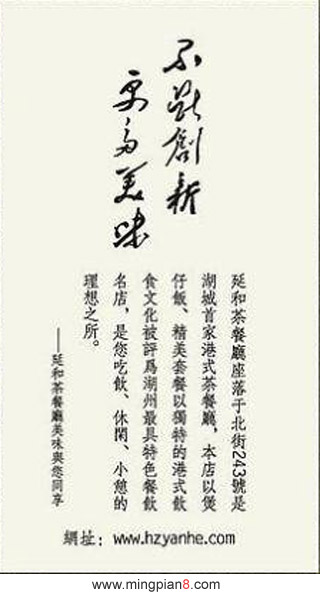 不斷創新
更多美味
延和茶餐廳座落于北街243號是
湖城首家港式茶餐廳，本店以煲
仔飯、精美套餐以獨特的港式飲
食文化被評爲湖州最具特色餐飲
名店，是您吃飲、休閑、小憩的
理想之所。
——延和茶餐廳美味與您同享
網址：www.hzyanhe.com
www.mingpian8.com